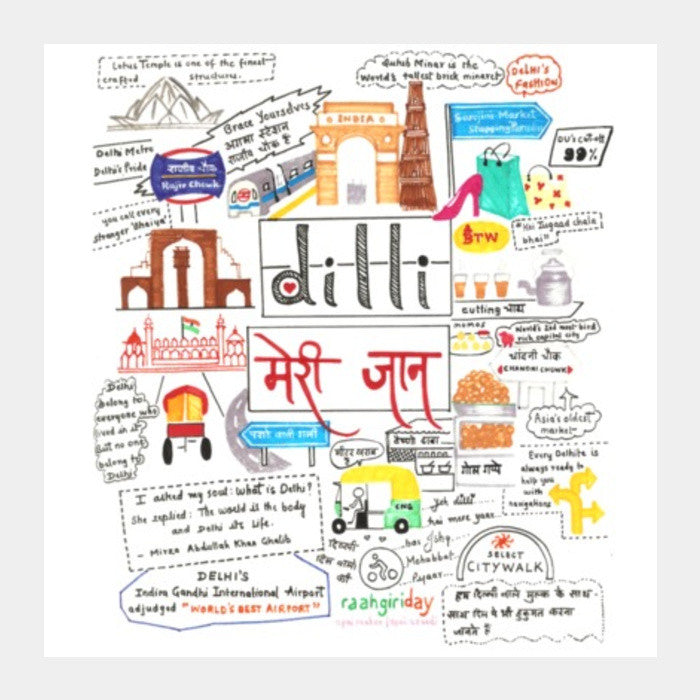 Lotus Temple is one of the finest
crafted structure.
Qutub Minar is the
World's tallest brick minaret
DELHI'S
FASHION
Brace Yourselves
अगला स्टेशन
राजीव चौक है
INDIA
Sarojini Market
Shopping
DU's Cut off
99%
Delhi Metro
Delhi's Pride
राजीव चौक
Rajiv Chowk
you call every
stranger 'Bhaiya'
BTW
"Koi Jugaad chala
bhai"
dilli
मेरी जान
cutting चाय
momos
World's 2nd most bird
rich capital city
चांदनी चौक
CHANDNI CHOWK
Asia's oldest
market
Delhi
belong to
everyone who
lived in it
But no one
belong to
Delhi
पराठे वाली गली
मीटर खराब
वैष्णो ढाबा
गोल गप्पे
Every Delhite is
always ready to
help you
with
navigations
I asked my soul: What is Delhi?
She replied: The world is the body
and Delhi its life.
- Mirza Abdullah Khan Ghalib
CNG
Yeh dilli
hai mere yaar
bas Ishq
Mohabbat
Pyaar
SELECT
CITYWALK
DELHI'S
Indira Gandhi International Airport
adjudged "WORLD'S BEST AIRPORT"
raahgiriday
हम दिल्ली वाले मुल्क के साथ
साथ दिल पे भी हुकूमत करना
जानते हैं